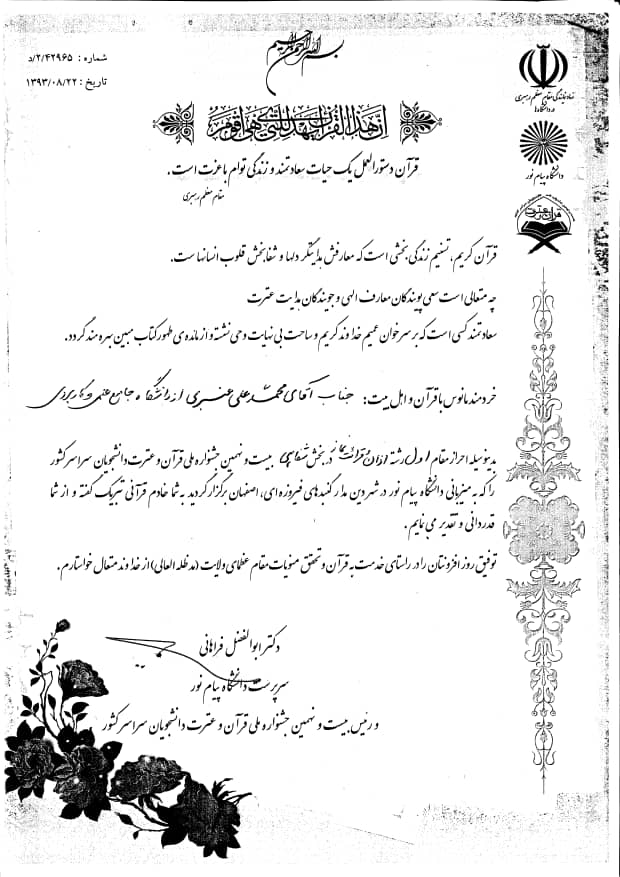 بسم الله الرحمن الرحیم
شماره : ۲/۴۲۹۶۵/د
تاریخ : ۱۳۹۳/۰۸/۲۲
نهاد نمایندگی مقام معظم رهبری
در دانشگاه‌ها
دانشگاه پیام نور
قرآن و عترت
ان هذا القرآن یهدی للتی هی اقوم
قرآن دستورالعمل یک حیات سعادتمند و زندگی توام با عزت است.
مقام معظم رهبری
قرآن کریم، تسنیم زندگی بخشی است که معارفش هدایتگر دلها و شفابخش قلوب انسانهاست.
چه متعالی است سعی پویندگان معارف الهی و جویندگان هدایت عترت
سعادتمند کسی است که بر سر خوان عمیم خداوند کریم و ساحت بی نهایت وحی نشسته و از مائده‌ی طهور کتاب مبین بهره مند گردد.
خردمند مانوس با قرآن و اهل بیت: جناب آقای محمد علی عنبری از دانشگاه جامع علمی و کاربردی
بدینوسیله احراز مقام اول رشته اذان و در بخش بیست و نهمین جشنواره ملی قرآن و عترت دانشجویان سراسر کشور
را که به میزبانی دانشگاه پیام نور در شهر دین مدار گنبدهای فیروزه ای، اصفهان برگزار گردید به شما خادم قرآنی تبریک گفته و از شما
قدردانی و تقدیر می نمایم.
توفیق روز افزونتان را در راستای خدمت به قرآن و تحقق منویات مقام عظمای ولایت (مد ظله العالی) از خداوند متعال خواستارم.
دکتر ابوالفضل فراهانی
سرپرست دانشگاه پیام نور
و رئیس بیست و نهمین جشنواره ملی قرآن و عترت دانشجویان سراسر کشور